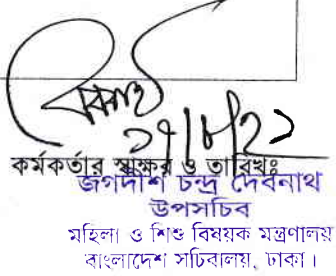 কর্মকর্তার স্বাক্ষর ও তারিখঃ
জগদীশ চন্দ্র দেবনাথ
উপসচিব
মহিলা ও শিশু বিষয়ক মন্ত্রণালয়
বাংলাদেশ সচিবালয়, ঢাকা।